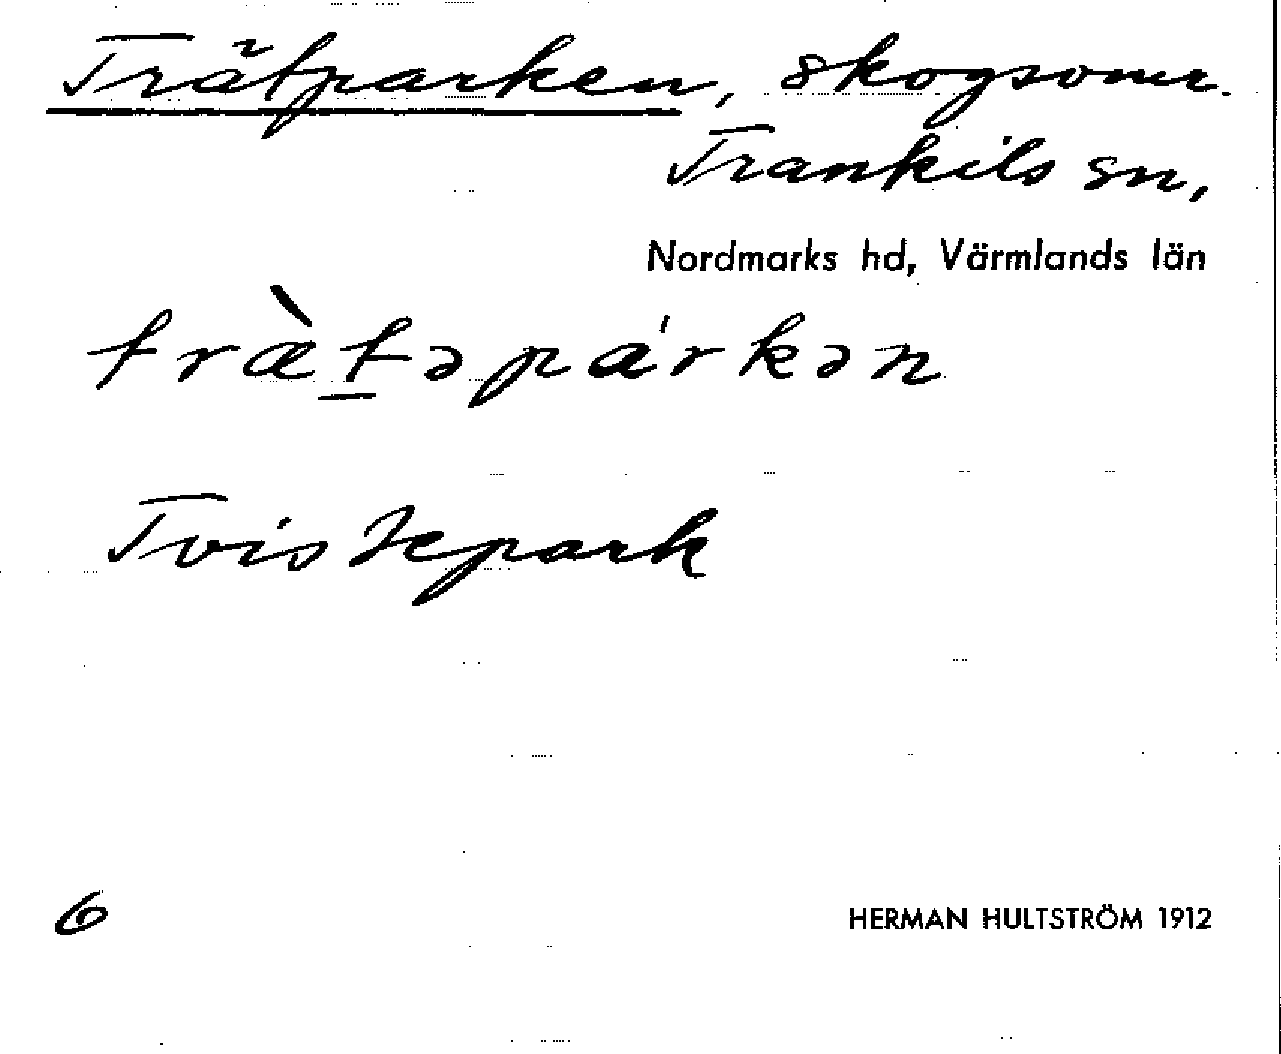 Trätparken, skogsomr.
Trankils sn,
Nordmarks hd, Värmlands län
træ̀təpárkən
Tvistepark
6
HERMAN HULTSTRÖM 1912